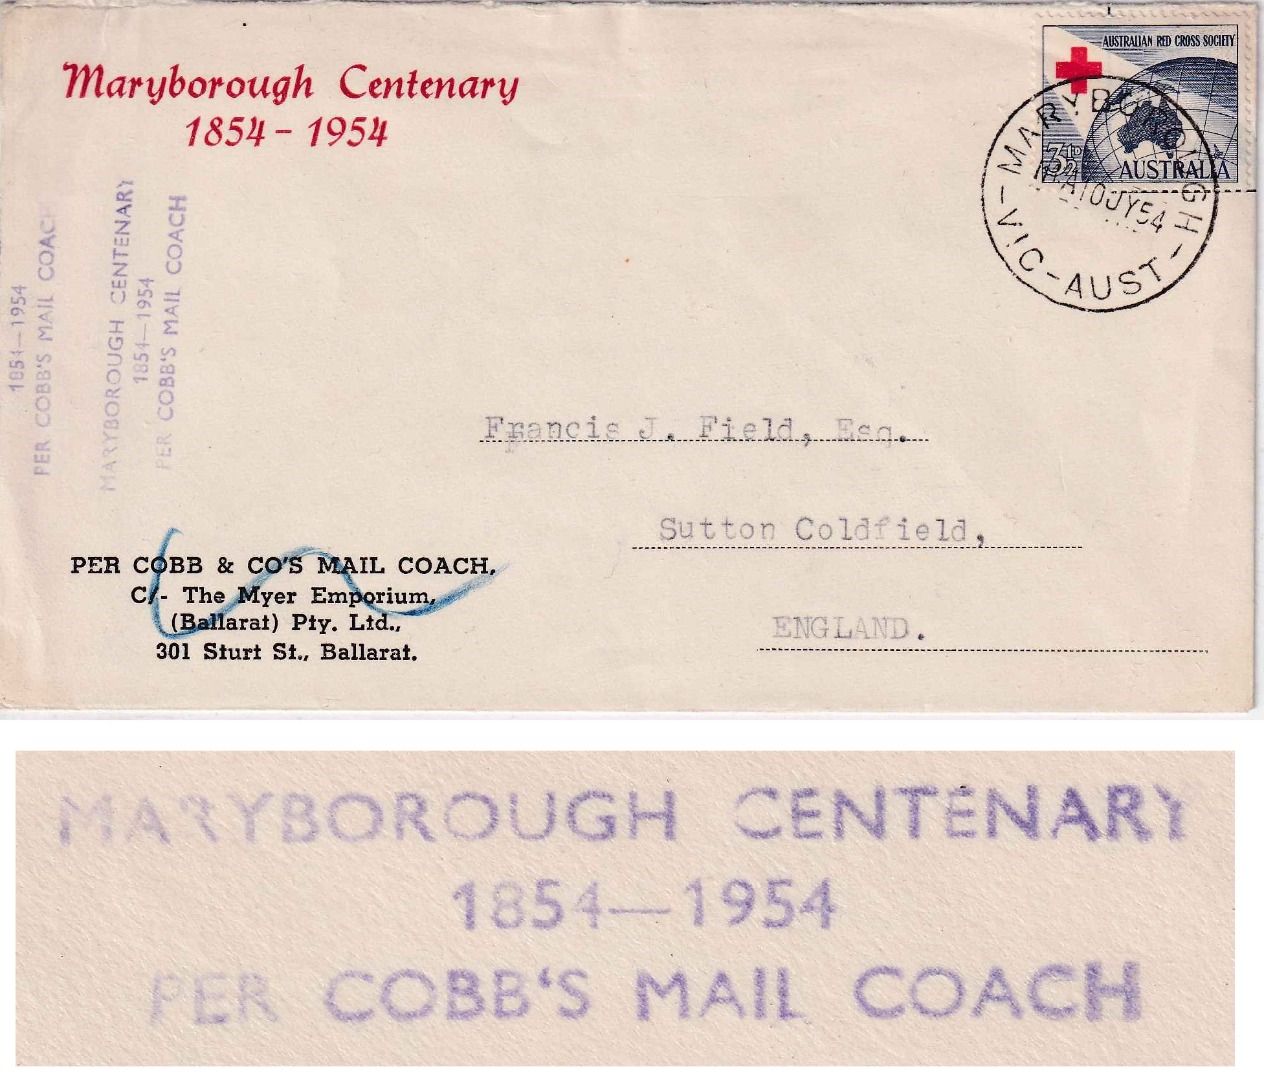 Maryborough Centenary
1854 - 1954
AUSTRALIAN RED CROSS SOCIETY
3½D
AUSTRALIA
MARYBOROUGH
10JY54
VIC-AUST
1854—1954
PER COBB'S MAIL COACH
MARYBOROUGH CENTENARY
1854—1954
PER COBB'S MAIL COACH
Francis J. Field, Esq.
Sutton Coldfield,
ENGLAND.
PER COBB & CO'S MAIL COACH,
C/- The Myer Emporium,
(Ballarat) Pty. Ltd.,
301 Sturt St., Ballarat.
MARYBOROUGH CENTENARY
1854—1954
PER COBB'S MAIL COACH